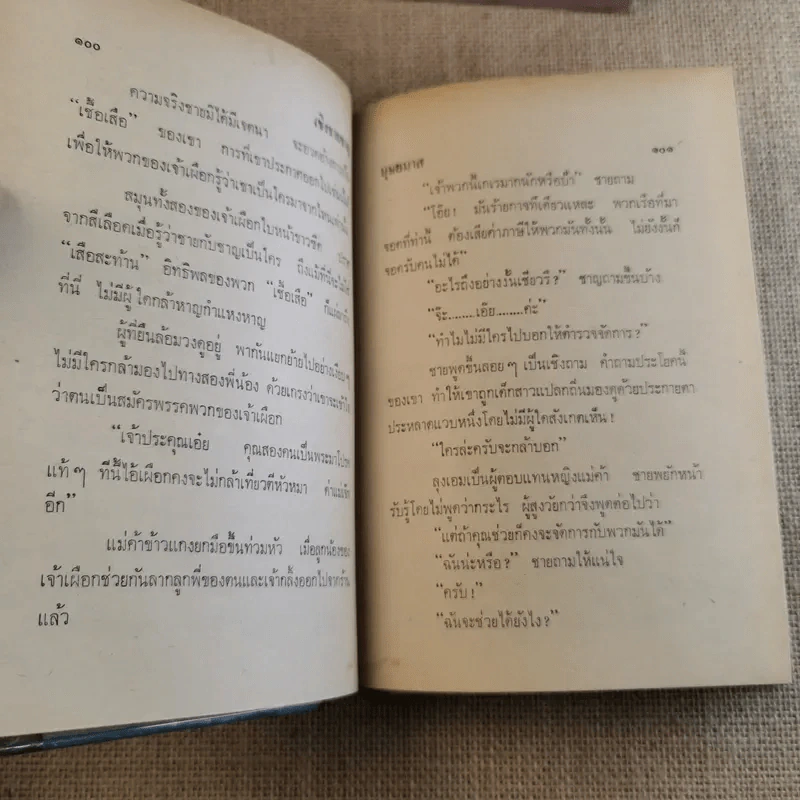 ๑๐๐
ความจริงชายมิได้มีเจตนา
"เชื้อเสือ" ของเขา การที่เขาประกาศออกไป
เพื่อให้พวกของเจ้าเผือกรู้ว่าเขาเป็นใครมาจากไหน
สมุนทั้งสองของเจ้าเผือกใบหน้าขาวซีด
จากสีเลือดเมื่อรู้ว่าชายกับชาญเป็นใคร ถึงแม้ที่นี่จะไม่
"เสือสะท้าน" อิทธิพลของพวก "เชื้อเสือ"
ที่นี่ ไม่มีผู้ใดกล้าหาญกำแหงหาญ
ผู้ที่ยืนล้อมวงดูอยู่ พากันแยกย้ายไปอย่างเงียบๆ
ไม่มีใครกล้ามองไปทางสองพี่น้อง ด้วยเกรงว่าเขาจะเข้าใจ
ว่าตนเป็นสมัครพรรคพวกของเจ้าเผือก
"เจ้าประคุณเอ๋ย คุณสองคนเป็นพระมาโปรด
แท้ๆ ทีนี้ไอ้เผือกคงจะไม่กล้าเที่ยวตีหัวหมา ด่าแม่เจ๊ก
อีก"
แม่ค้าข้าวแกงยกมือขึ้นท่วมหัว เมื่อลูกน้องของ
เจ้าเผือกช่วยกันลากลูกพี่ของตนและเจ้ากลิ้งออกไปจากร้าน
แล้ว
บุษยมาส ๑๐๑
"เจ้าพวกนี้เกเรมากนักหรือป้า" ชายถาม
"โอ๊ย! มันร้ายกาจทีเดียวแหละ พวกเรือที่มา
จอดที่ท่านี้ ต้องเสียค่าภาษีให้พวกมันทั้งนั้น ไม่ยังงั้นก็
จอดรับคนไม่ได้"
"อะไรถึงอย่างงั้นเชียวรึ?" ชาญถามขึ้นบ้าง
"จ๊ะ........เอ๊ย........ค่ะ"
"ทำไมไม่มีใครไปบอกให้ตำรวจจัดการ?"
ชายพูดขึ้นลอยๆ เป็นเชิงถาม คำถามประโยคนี้
ของเขา ทำให้เขาถูกเด็กสาวแปลกถิ่นมองดูด้วยประกายตา
ประหลาดแวบหนึ่งโดยไม่มีผู้ใดสังเกตเห็น!
"ใครล่ะครับจะกล้าบอก"
ลุงเอมเป็นผู้ตอบแทนหญิงแม่ค้า ชายพยักหน้า
รับรู้โดยไม่พูดว่ากระไร ผู้สูงวัยกว่าจึงพูดต่อไปว่า
"แต่ถ้าคุณช่วยก็คงจะจัดการกับพวกมันได้"
"ฉันน่ะหรือ?" ชายถามให้แน่ใจ
"ครับ!"
"ฉันจะช่วยได้ยังไง?"